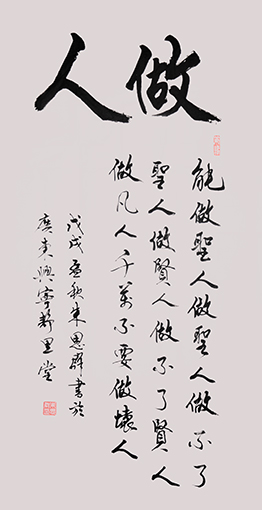 做人
能做聖人做聖人做不了
聖人做賢人做不了賢人
做凡人千萬不要做壞人
戊戌孟秋朱思群書於
廣東興寧里堂